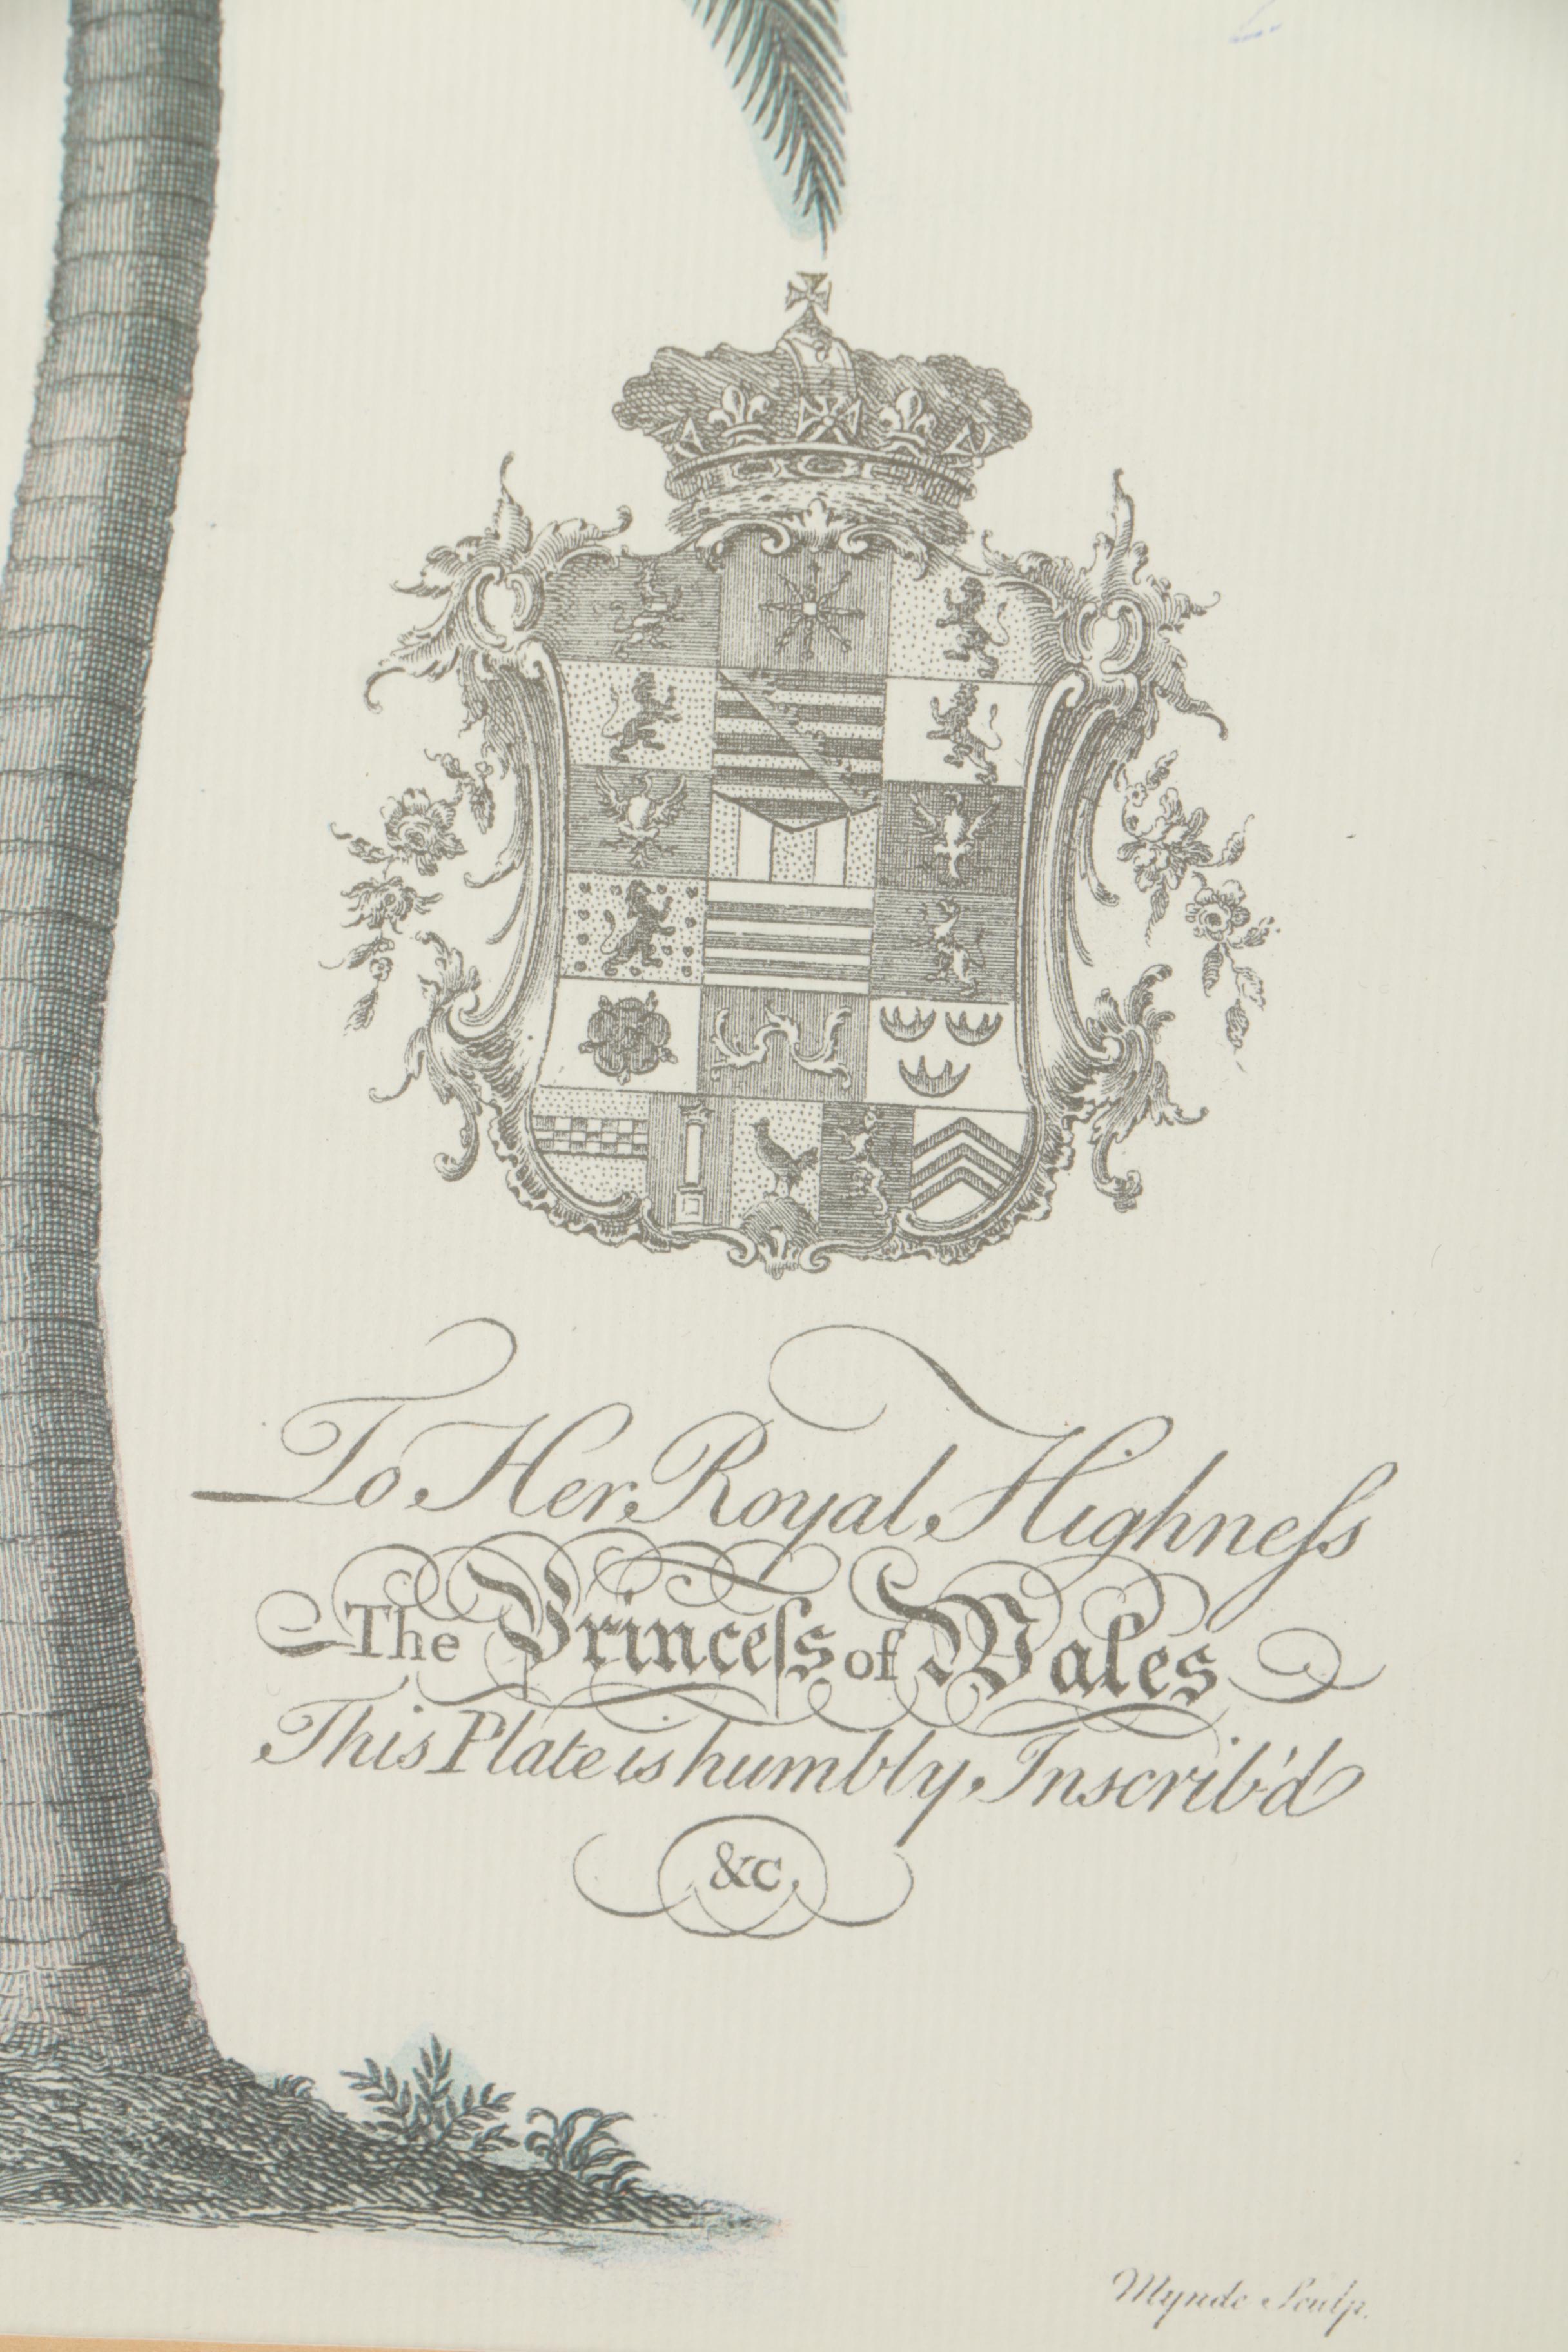 To Her Royal Highneſs
The Princeſs of Wales
This Plate is humbly Inscrib'd
&c.
Mynde Sculp.